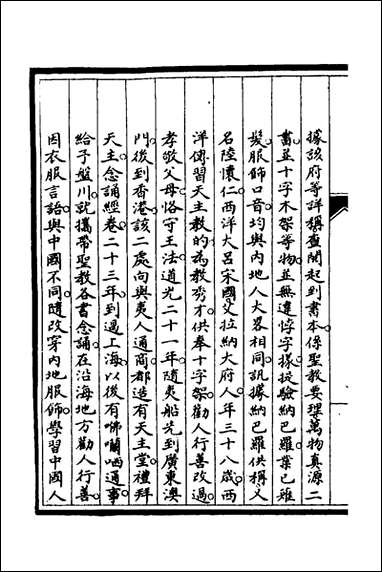 據該府等詳稱查閱起到書本係聖教要理萬物真源二
書並十字木架等物並無違悖字樣提驗納巴羅業已薙
髮服飾口音均與內地人大畧相同訊據納巴羅供稱又
名陸懷仁西洋大呂宋國父拉納大府人年三十八歲西
洋傳習天主教的為教秀才供奉十字架勸人行善改過
孝敬父母恪守王法道光二十一年隨夷船先到廣東澳
門後到香港該二處向與夷人通商都造有天主堂禮拜
天主念誦經卷二十三年到過上海以後有咈囒哂通事
給予盤川就攜帶聖教各書念誦在沿海地方勸人行善
因衣服言語與中國不同隨改穿內地服飾學習中國人